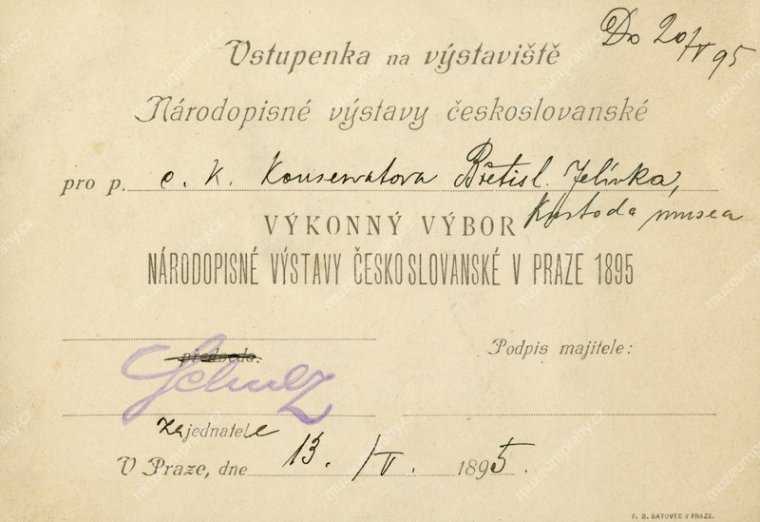 Do 20/V 95
Vstupenka na výstaviště
Národopisné výstavy českoslovanské
pro p. c. k. Konservatora Břetisl. Jelínka,
Kustoda musea
VÝKONNÝ VÝBOR
NÁRODOPISNÉ VÝSTAVY ČESKOSLOVANSKÉ V PRAZE 1895
předseda.
Podpis majitele:
Schulz
za jednatele
V Praze, dne 13. /V. 1895.
F. B. BATOVEC V PRAZE.